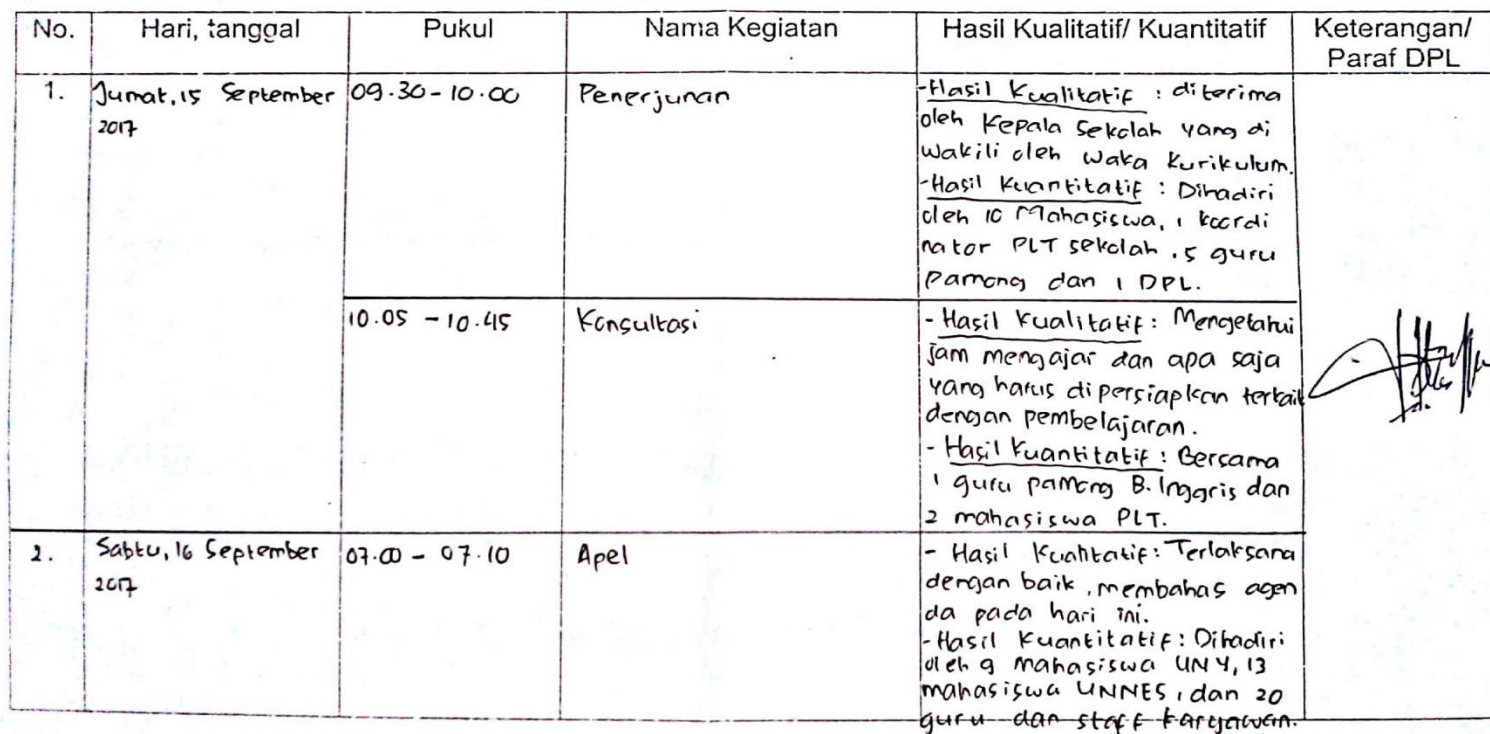 No. Hari, tanggal Pukul Nama Kegiatan Hasil Kualitatif/ Kuantitatif Keterangan/
Paraf DPL
1. Jumat, 15 September 09.30 - 10.00 Penerjunan -Hasil Kualitatif : diterima
2017 oleh Kepala Sekolah yang di
wakili oleh Waka Kurikulum.
-Hasil Kuantitatif : Dihadiri
oleh 10 Mahasiswa, 1 koordi
nator PLT sekolah, 5 guru
Pamong dan 1 DPL.
10.05 - 10.45 Konsultasi - Hasil Kualitatif : Mengetahui
jam mengajar dan apa saja
yang harus dipersiapkan terkait
dengan pembelajaran.
- Hasil Kuantitatif : Bersama
1 guru pamong B. Inggris dan
2 mahasiswa PLT.
2. Sabtu, 16 September 07.00 - 07.10 Apel - Hasil Kualitatif : Terlaksana
2017 dengan baik, membahas agen
da pada hari ini.
-Hasil Kuantitatif : Dihadiri
oleh 9 mahasiswa UNY, 13
mahasiswa UNNES, dan 20
guru dan staff karyawan.